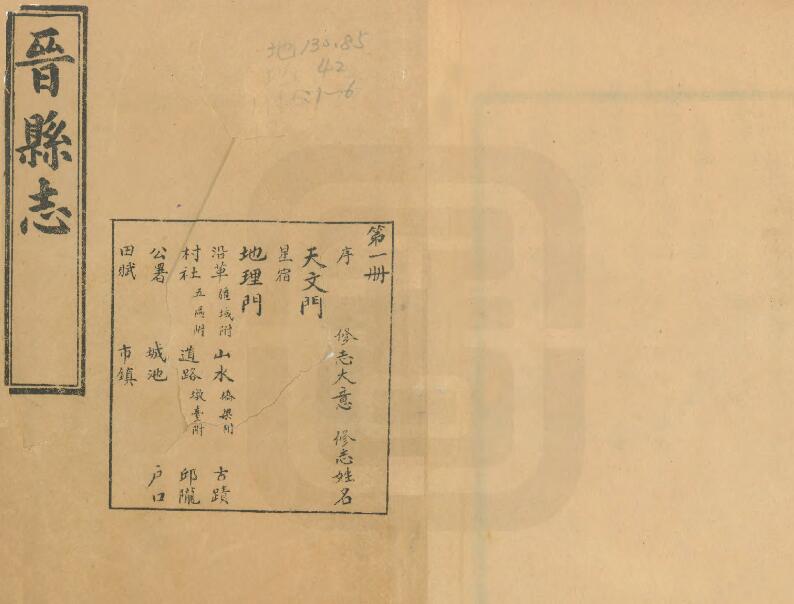 晉縣志
地130.85
42
:1~6
第一冊
序 修志大意 修志姓名
天文門
星宿
地理門
沿革疆域附 山水橋梁附 古蹟
村社五區附 道路墩臺附 邱隴
公署 城池 戶口
田賦 市鎮